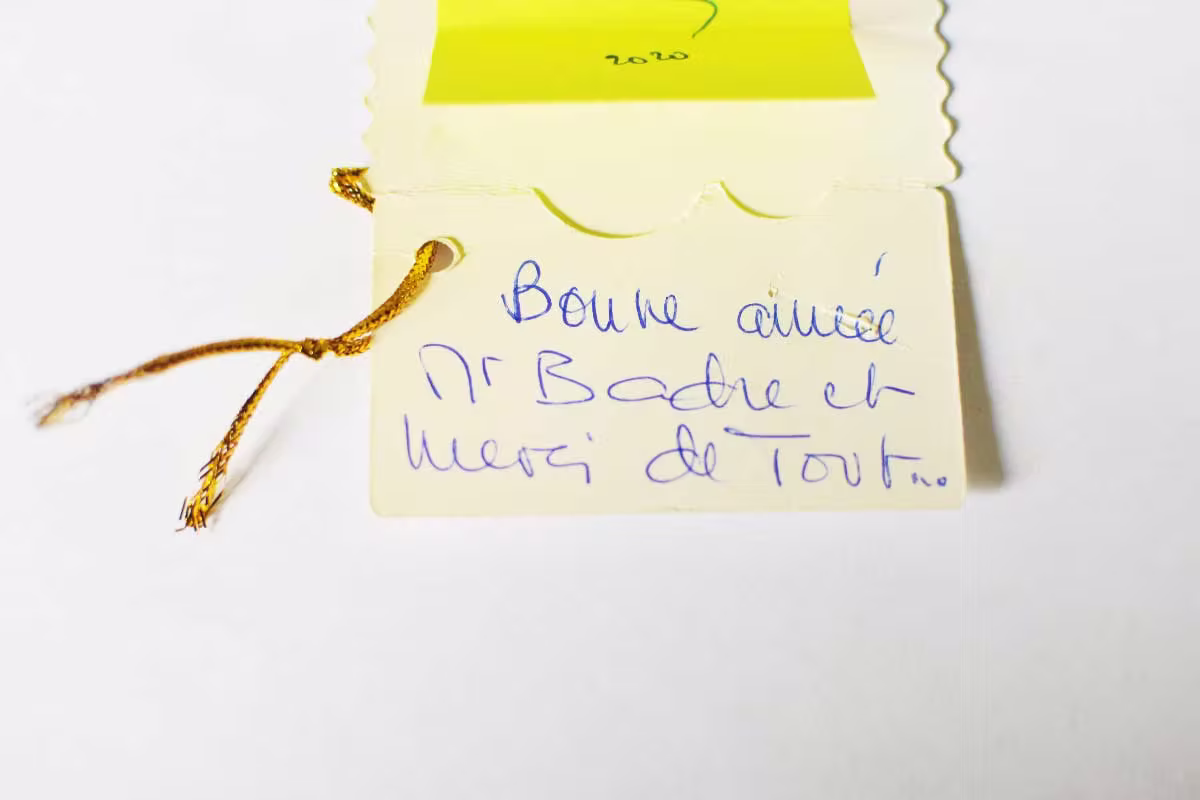 2020
Bonne année
Mr Badre et
merci de Tout...